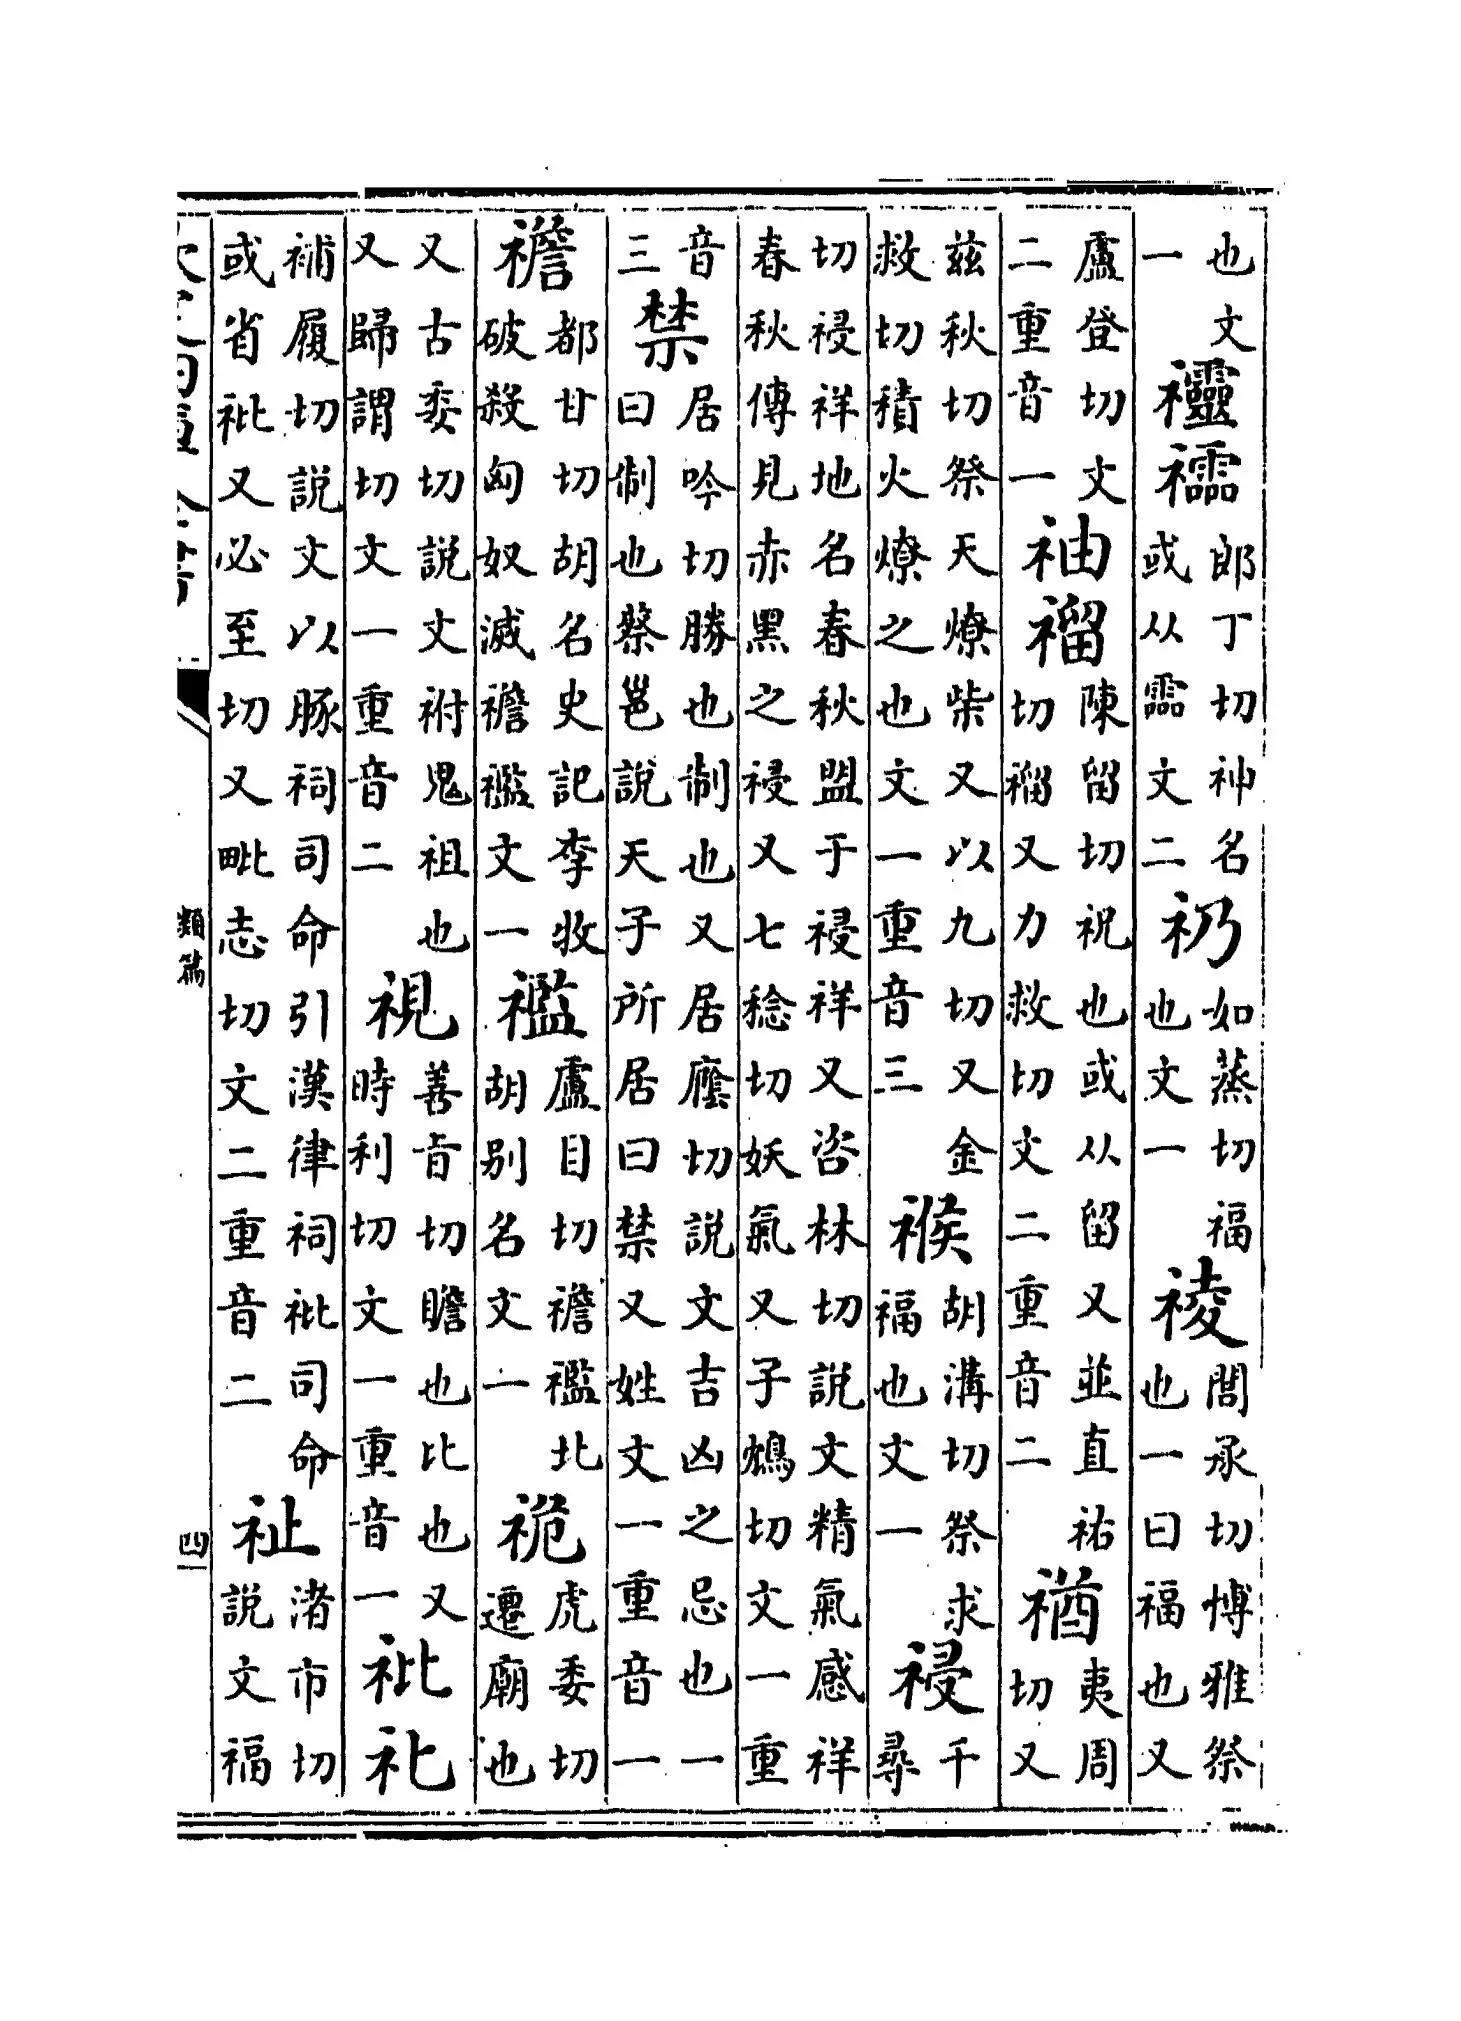 也文一郎丁切神名或从霝文二礽如蒸切福也文一祾閭承切博雅祭也一曰福也又
盧登切文二重音一䄂陳留切祝也或从留又並直祐切又力救切文二重音二禉夷周切又
茲秋切祭天燎柴又以九切又金救切積火燎之也文一重音三䄛胡溝切祭求福也文一祲千尋
切祲祥地名春秋盟于祲祥又咨林切説文精氣感祥春秋傳見赤黑之祲又七稔切妖氣又子鴆切文一重
音三禁居吟切勝也制也又居廕切説文吉凶之忌也一曰制也蔡邕説天子所居曰禁又姓文一重音一
都甘切胡名史記李牧破殺匈奴滅文一盧目切北胡别名文一祪虎委切遷廟也
又古委切説文祔鬼祖也又歸謂切文一重音二視善㫖切瞻也比也又時利切文一重音一
補履切説文以豚祠司命引漢律祠司命或省又必至切又毗志切文二重音二祉渚市切説文福
類篇
四